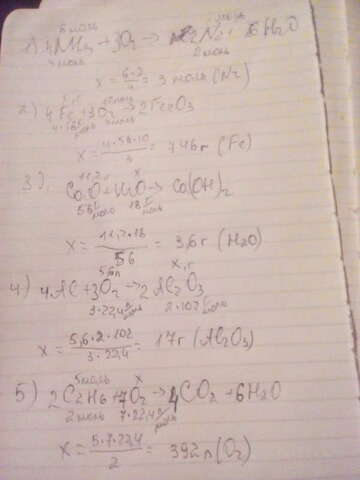 6 моль
1) 4NH₃ + 3O₂ → 2N₂ + 6H₂O
4 моль 2 моль
x = 6·2/4 = 3 моль (N₂)
2) 4Fe + 3O₂ → 2Fe₂O₃
x = 4·56·10/3 = 746 г (Fe)
11,2 г x
3) CaO + H₂O → Ca(OH)₂
56 г/моль 18 г/моль
x = 11,2·18/56 = 3,6 г (H₂O)
5,6 л x, г
4) 4Al + 3O₂ → 2Al₂O₃
3·22,4 л/моль 2·102 г/моль
x = 5,6·2·102/3·22,4 = 17 г (Al₂O₃)
5 моль x
5) 2C₂H₆ + 7O₂ → 4CO₂ + 6H₂O
2 моль 7·22,4 л/моль
x = 5·7·22,4/2 = 392 л (O₂)